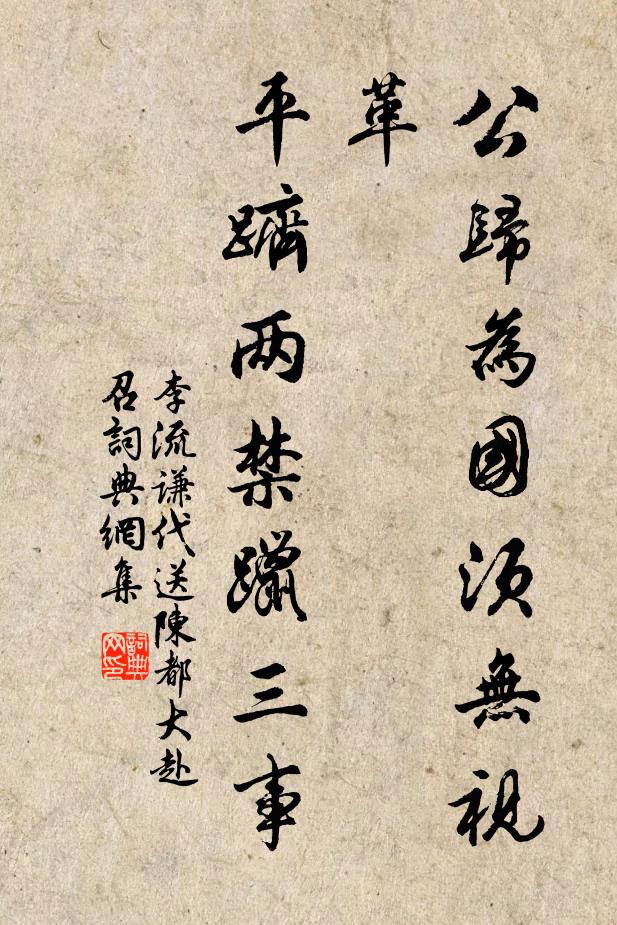 公歸為國須無視
革
平躋两禁躐三事
李流謙代送陳都大赴
召詞典網集
詞典
网印